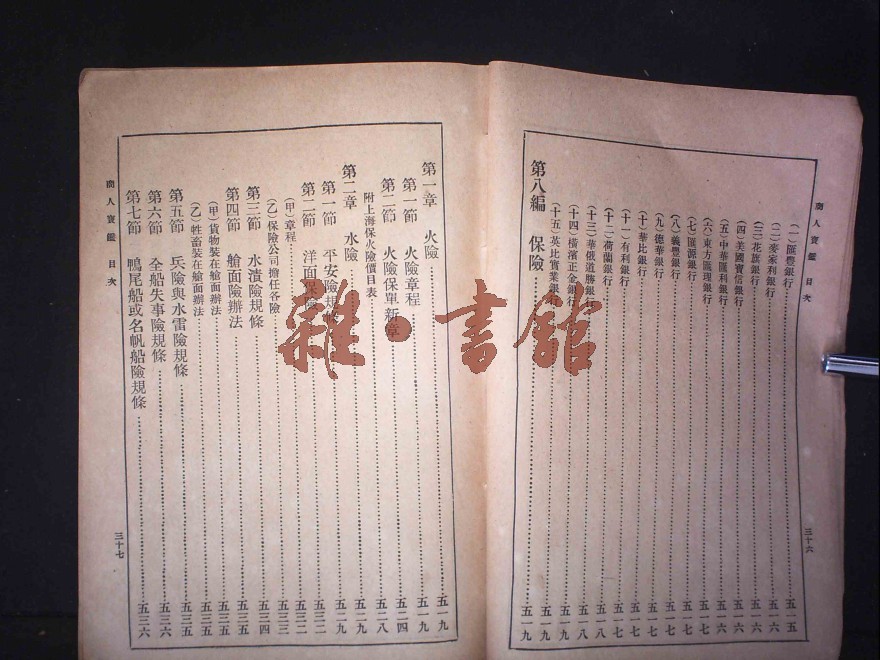 商人寶鑑 目次
(一)匯豐銀行……五一五
(二)麥家利銀行……五一六
(三)花旗銀行……五一六
(四)美國寶信銀行……五一六
(五)中華匯利銀行……五一六
(六)東方匯理銀行……五一七
(七)匯源銀行……五一七
(八)義豐銀行……五一七
(九)德華銀行……五一七
(十)華比銀行……五一七
(十一)有利銀行……五一七
(十二)荷蘭銀行……五一八
(十三)華俄道勝銀行……五一八
(十四)橫濱正金銀行……五一八
(十五)英比實業銀行……五一九
第八編 保險……五一九
三十六
第一章 火險……五一九
第一節 火險章程……五一九
第二節 火險保單新章……五二四
附上海保火險價目表……五二八
第二章 水險……五二九
第一節 平安險規條……五二九
第二節 洋面保險……五三二
(甲)章程……五三二
(乙)保險公司擔任各險……五三三
第三節 水漬險規條……五三四
第四節 艙面險辦法……五三五
(甲)貨物裝在艙面辦法……五三五
(乙)牲畜裝在艙面辦法……五三五
第五節 兵險與水雷險規條……五三五
第六節 全船失事險規條……五三六
第七節 鴨尾船或名帆船險規條……五三六
商人寶鑑 目次
三十七
雜·書館